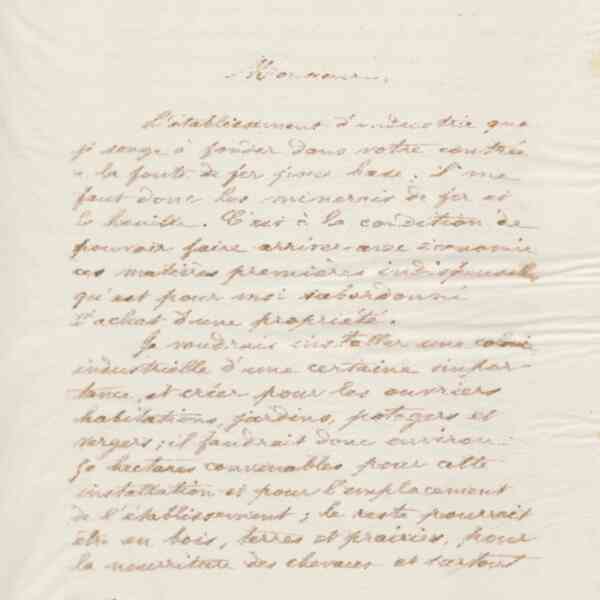 Monsieur,
L'établissement d'industrie que
je songe à fonder dans votre contrée
a la fonte de fer pour base. Il me
faut donc les minerais de fer et
la houille. C'est à la condition de
pouvoir faire arriver avec économie
ces matières premières indispensables
qu'est pour moi subordonné
l'achat d'une propriété.
Je voudrais installer une
industrielle d'une certaine impor-
tance, et créer pour les ouvriers
habitations, jardins, potagers et
vergers; il faudrait donc environ
50 hectares convenables pour cette
installation et pour l'emplacement
de l'établissement; le reste pourrait
être en bois, terres et prairies, pour
la nourriture des chevaux et surtout